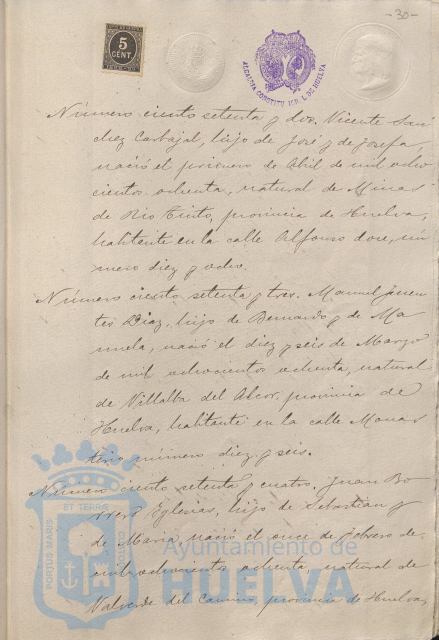 -30-
5
CENT.
ALCALDIA CONSTITUCIONAL DE HUELVA
Número ciento setenta y dos. Vicente San
chez Carbajal, hijo de José y de Josefa,
nació el primero de Abril de mil ocho
cientos ochenta, natural de Minas
de Rio Tinto, provincia de Huelva,
habitante en la calle Alfonso doce, nú
mero diez y ocho.
Número ciento setenta y tres. Manuel Fuen
tes Diaz, hijo de Bernardo y de Ma
nuela, nació el diez y seis de Marzo
de mil ochocientos ochenta, natural
de Villalba del Alcor, provincia de
Huelva, habitante en la calle Monas
terio número diez y seis.
Número ciento setenta y cuatro. Juan Bo
Iglesias, hijo de Sebastian y
de Maria, nació el once de Febrero de
mil ochocientos ochenta, natural de
Valverde del Camino, provincia de Huelva,
PORTUS MARIS
ET TERRE
CUSTODIA
Ayuntamiento de
HUELVA